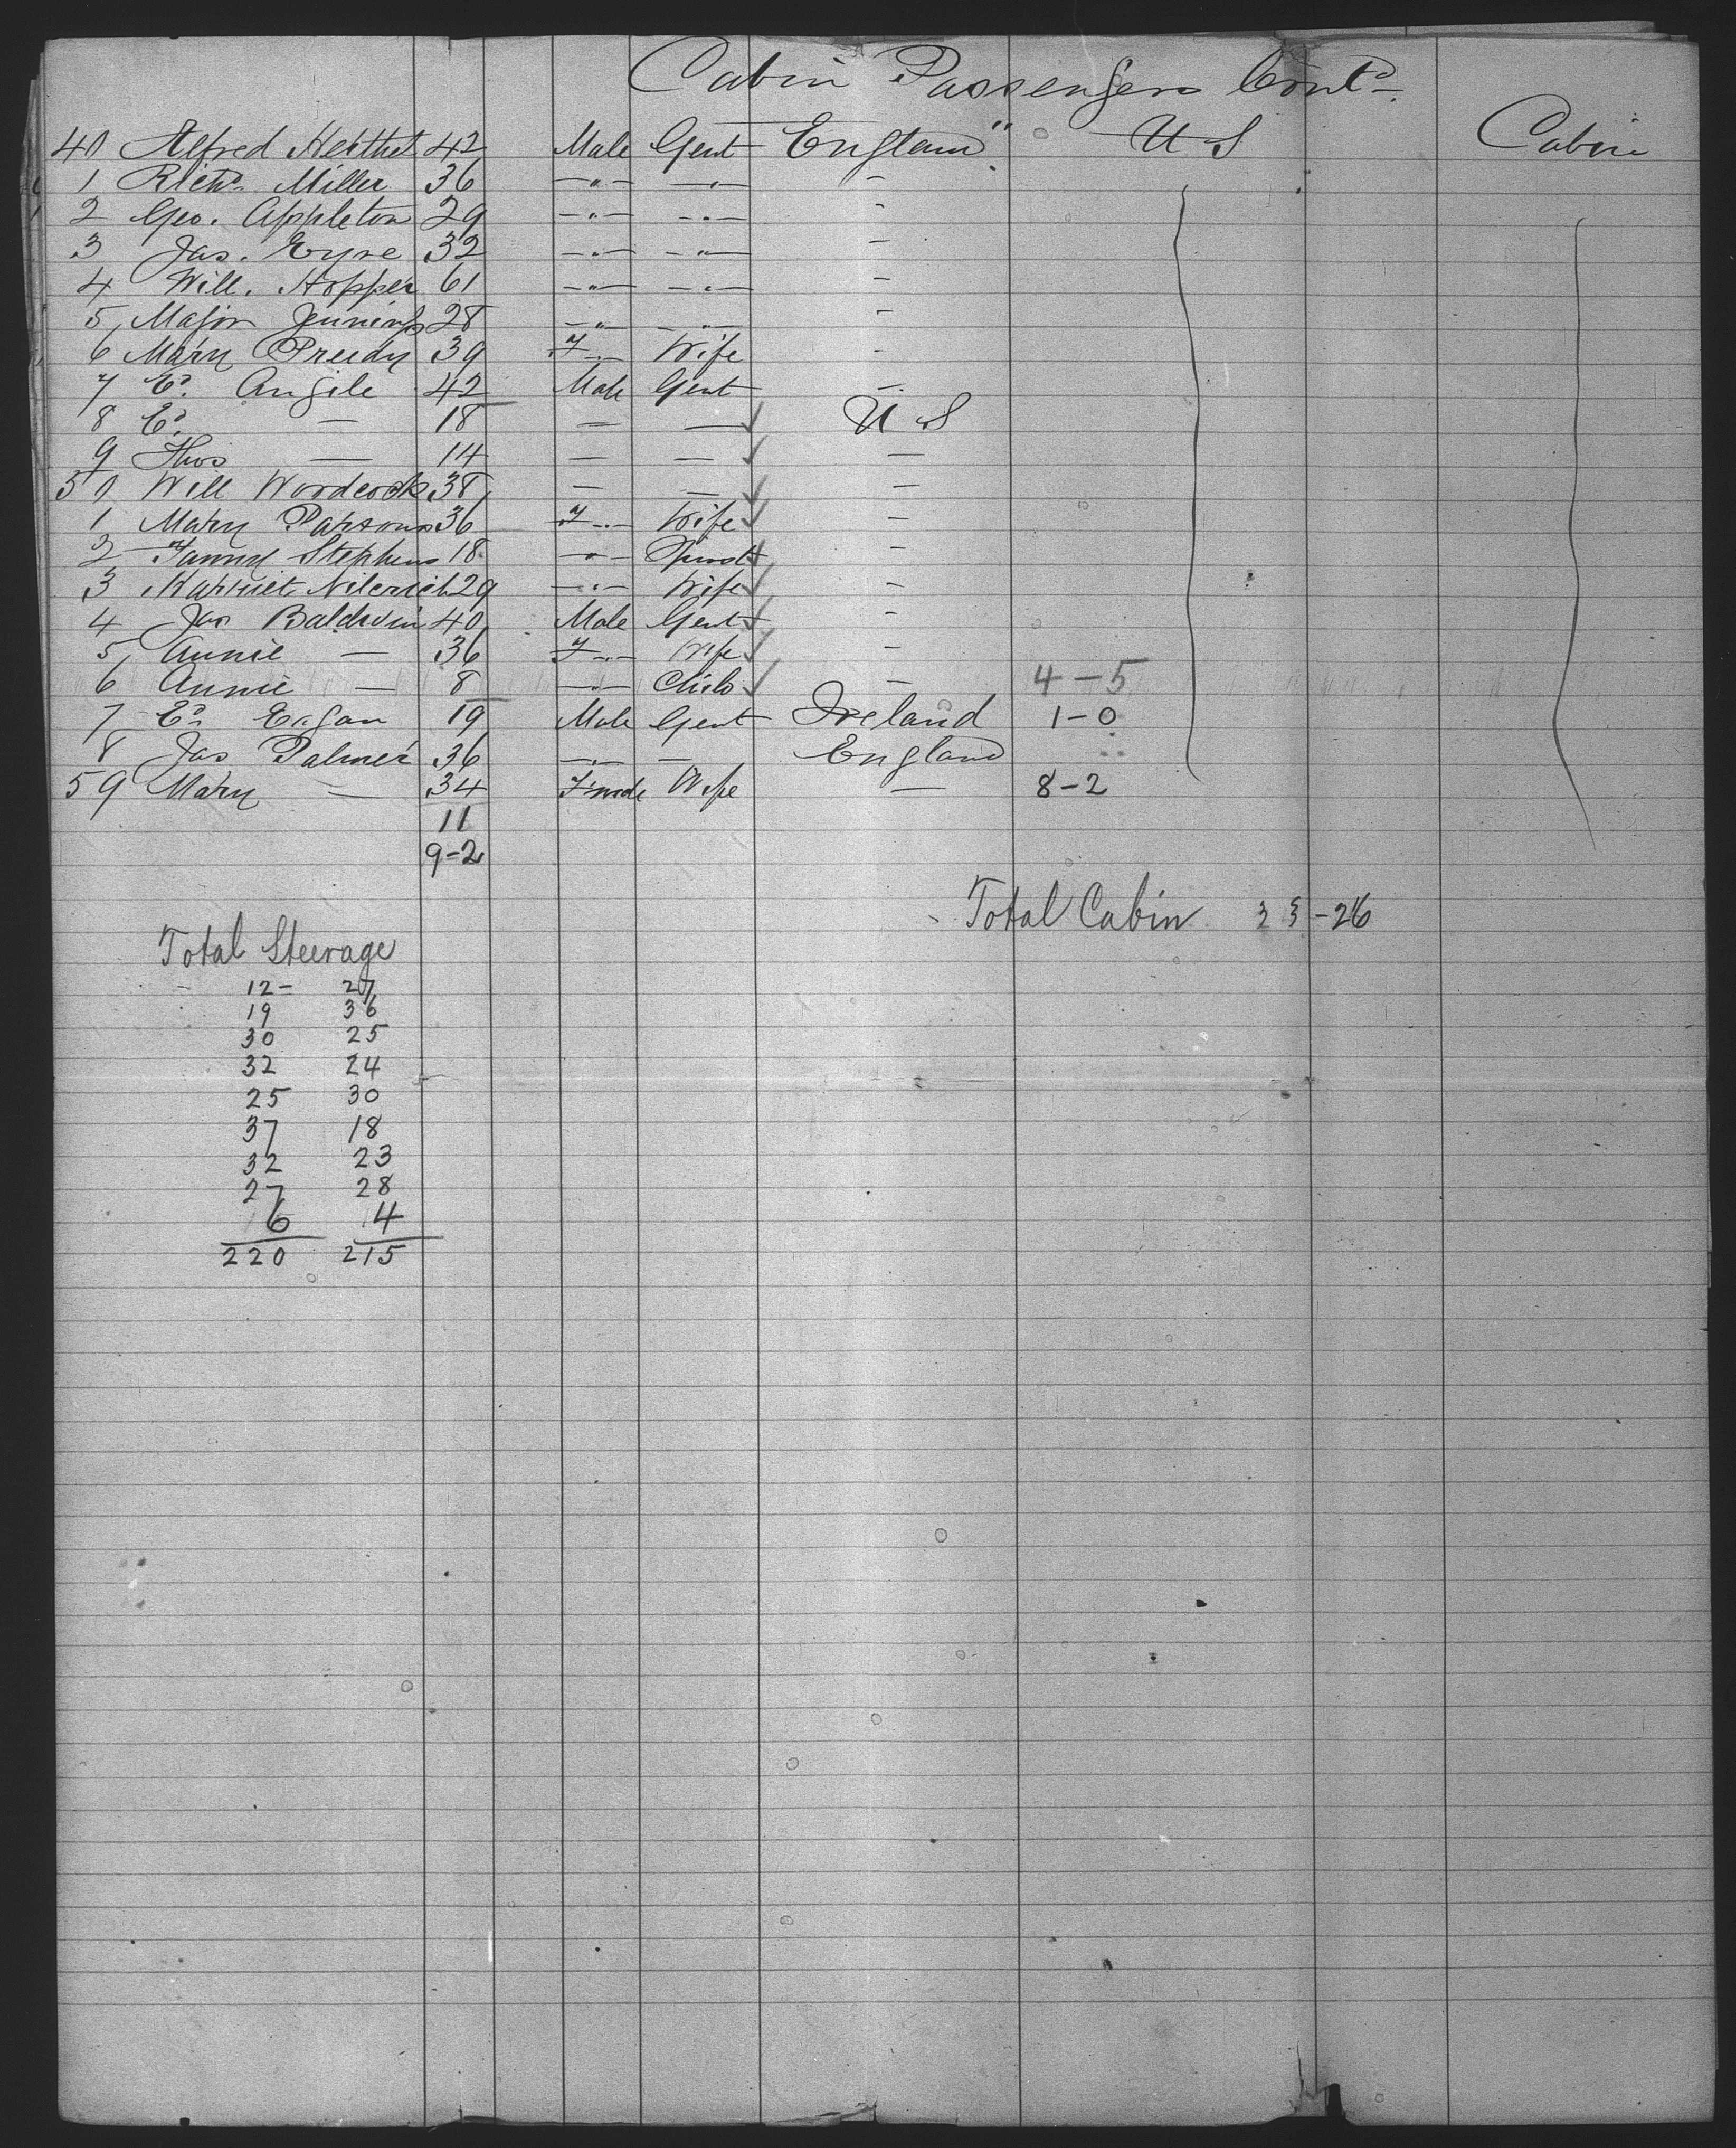 Cabin Passengers Contd
40 Alfred 42 Male Gent England " U S Cabin
1 Richd Miller 36 — " — — " — -
2 Geo. Appleton 29 — " — — " — -
3 Jas. Eyre 32 — " — — " — -
4 Will. Hopper 61 — " — — " — -
5 Major Jennings 28 — " — — " — -
6 Mary Preedy 39 F — " — Wife -
7 Ed. Angile 42 Male Gent —
8 Ed. — 18 — — U S
9 Thos — 14 — — —
50 Will Woodcock 38 — — —
1 Mary Parsons 36 F — " — Wife —
2 Fanny Stephens 18 — " — Spinst -
3 Harriet 29 — " — Wife -
4 Jas Baldwin 40 Male Gent -
5 Annie — 36 F — " — Wife -
6 Annie — 8 — " — Child — 4 - 5
7 Ed. Eagan 19 Male Gent Ireland 1 - 0
8 Jas Palmer 36 — " — — England
59 Mary — 34 Female Wife — 8 - 2
11
9 - 2
Total Cabin 33 - 26
Total Steerage
12 - 27
19 36
30 25
32 24
25 30
37 18
32 23
27 28
6 4
220 215